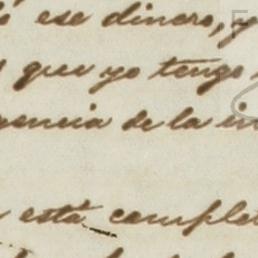 ese dinero, y
que yo tengo
gencia de la in
está complet